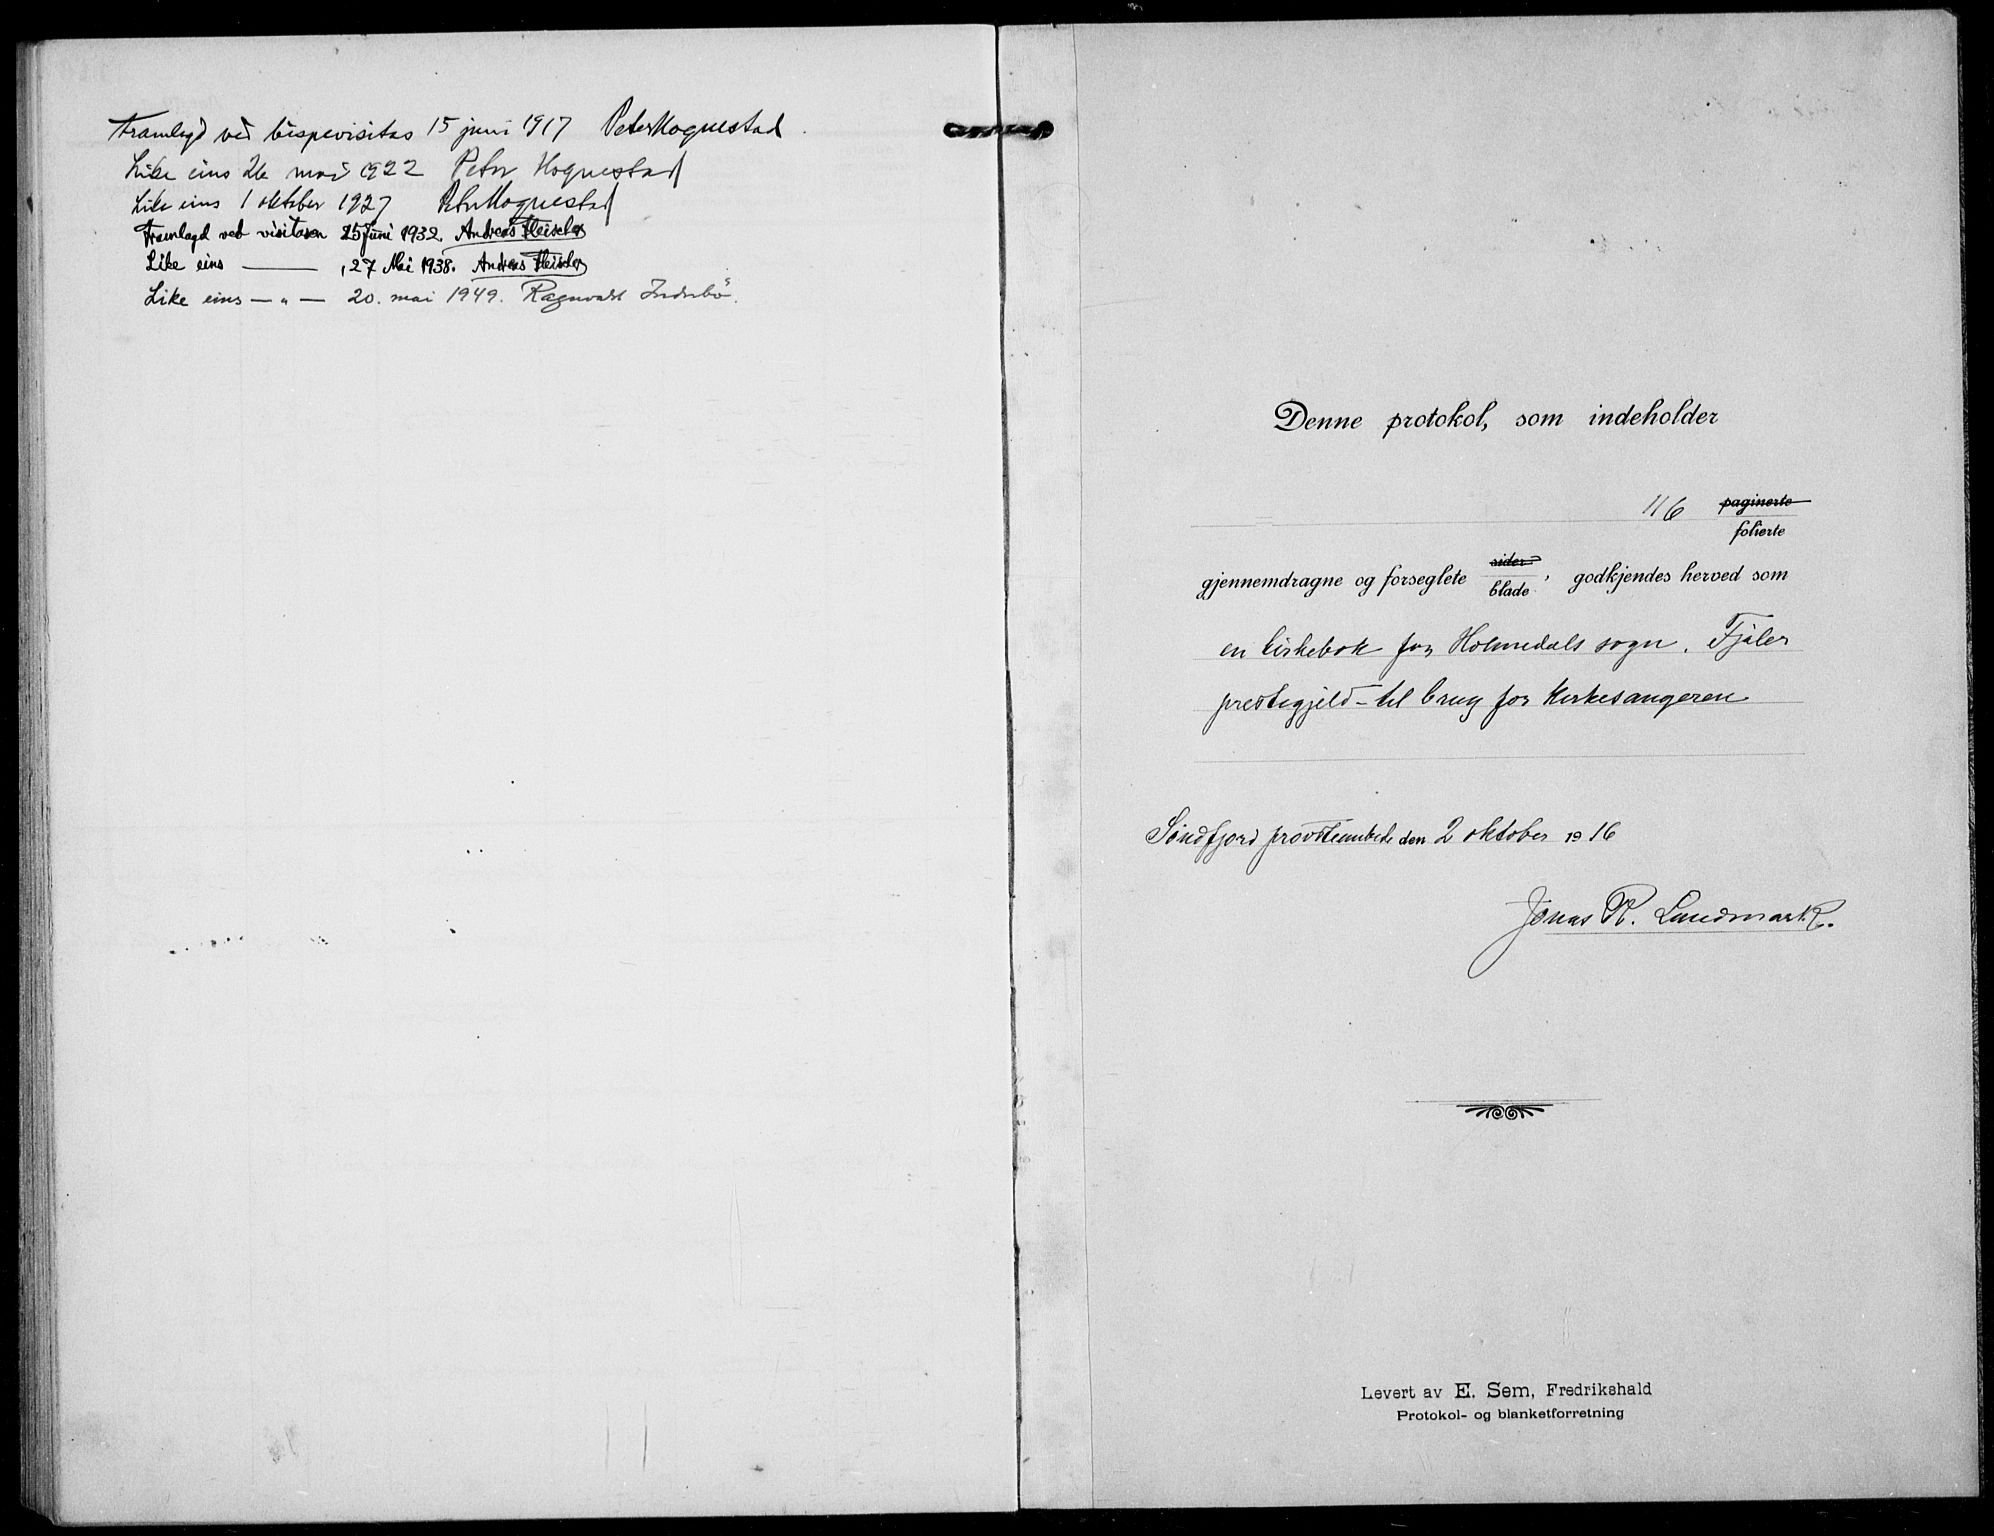 Framlagd ved bispevisitas 15 juni 1917 Peter Hognestad.
Like eins 26 mai 1922 Peter Hognestad
Like eins 1 oktober 1927 Peter Hognestad
Framlagd ved visitasen 15 Juni 1932. Andreas Fleischer
Like eins — , 27 Mai 1938. Andreas Fleischer
Like eins — " — 20. mai 1949. Ragnvald Indrebö.
Denne protokol, som indeholder
116 paginerte
folierte
gjennemdragne og forseglete sider
blade, godkjendes herved som
en kirkebok for Holmedals sogn, Fjaler
prestegjeld – til brug for Kirkesangeren
Søndfjord provsteembede den 2 oktober 1916
Jonas R. Landmark.
Levert av E. Sem, Fredrikshald
Protokol- og blanketforretning